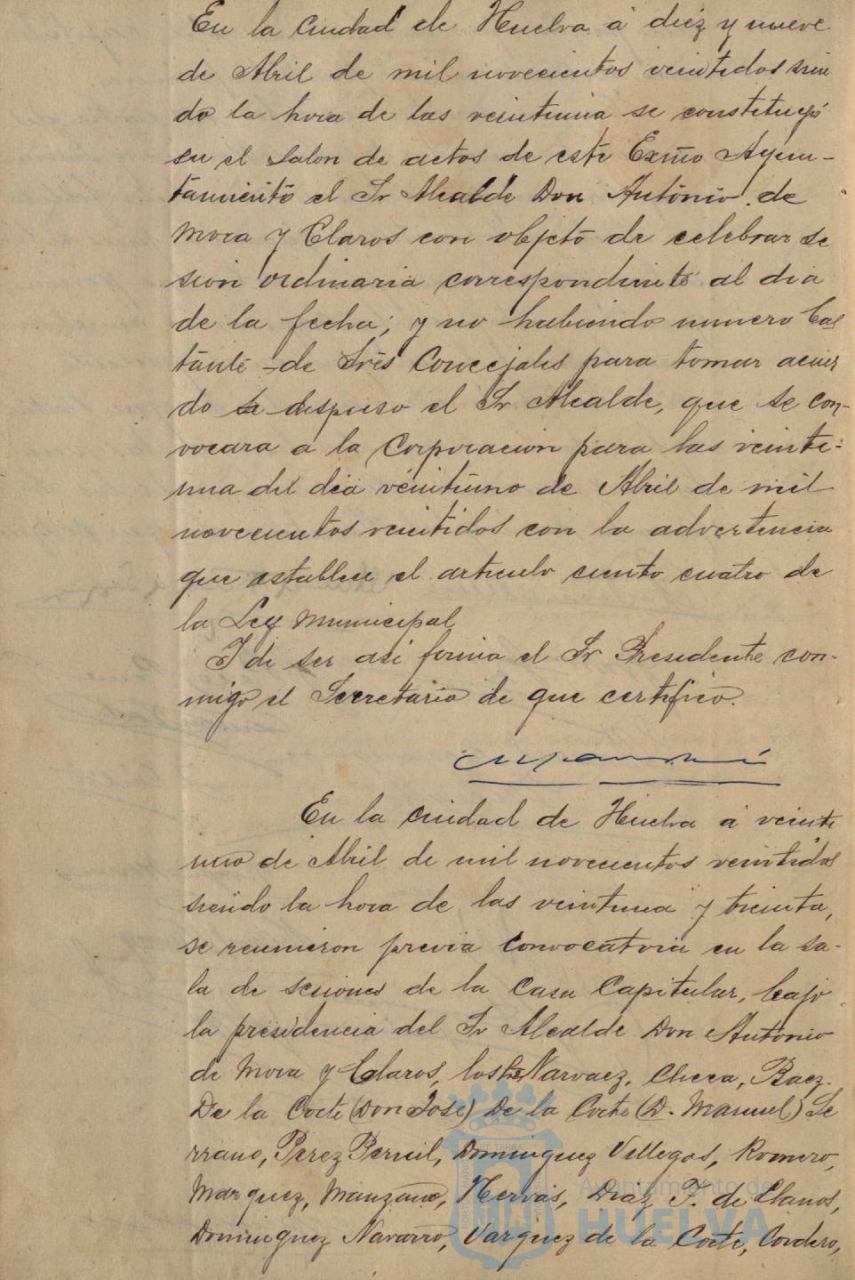 En la Ciudad de Huelva á diez y nueve
de Abril de mil novecientos veintidos sien
do la hora de las veintiuna se constituyó
en el Salon de actos de este Exmo Ayun-
tamiento el Sr Alcalde Don Antonio de
Mora y Claros con objeto de celebrar se
sion ordinaria correspondiente al dia
de la fecha; y no habiendo numero bas
tante de Sres Concejales para tomar acuer
do se dispuso el Sr Alcalde, que se con-
vocara a la Corporacion para las veinti-
una del dia veintiuno de Abril de mil
novecientos veintidos con la advertencia
que establece el articulo ciento cuatro de
la Ley Municipal
Y de ser asi firma el Sr Presidente con-
migo el Secretario de que certifico.
En la Ciudad de Huelva á veinti
uno de Abril de mil novecientos veintidos
siendo la hora de las veintiuna y treinta,
se reunieron previa convocatoria en la sa-
la de sesiones de la Casa Capitular, bajo
la presidencia del Sr Alcalde Don Antonio
de Mora y Claros, los Sres Narvaez, Checa, Baez.
De la Corte (Don José) De la Corte (D. Manuel) Se
rrano, Perez Bernil, Dominguez Villegas, Romero,
Marquez, Manzano, Hervás, Diaz F. de Llanos,
Dominguez Navarro, Vazquez de la Corte, Cordero,
Ayuntamiento de
HUELVA